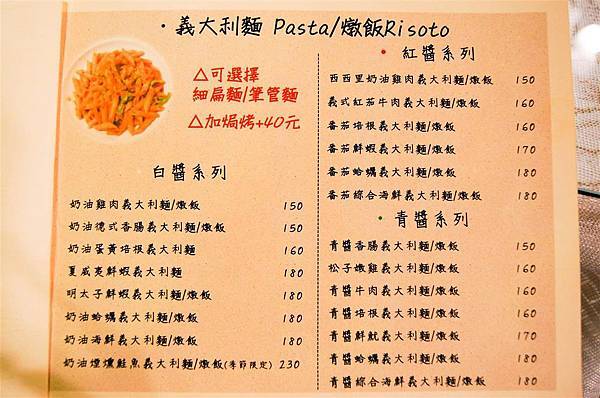 ·義大利麵 Pasta/燉飯Risoto
△可選擇
細扁麵/筆管麵
△加焗烤+40元
白醬系列
奶油雞肉義大利麵/燉飯 150
奶油德式香腸義大利麵/燉飯 150
奶油蛋黃培根義大利麵 160
夏威夷鮮蝦義大利麵 180
明太子鮮蝦義大利麵/燉飯 180
奶油蛤蠣義大利麵/燉飯 180
奶油海鮮義大利麵/燉飯 180
奶油煙燻鮭魚義大利麵/燉飯(季節限定) 230
·紅醬系列
西西里奶油雞肉義大利麵/燉飯 150
義式紅茄牛肉義大利麵/燉飯 160
番茄培根義大利麵/燉飯 160
番茄鮮蝦義大利麵/燉飯 170
番茄蛤蠣義大利麵/燉飯 180
番茄綜合海鮮義大利麵/燉飯 180
·青醬系列
青醬香腸義大利麵/燉飯 150
松子嫩雞義大利麵/燉飯 160
青醬牛肉義大利麵/燉飯 160
青醬培根義大利麵/燉飯 160
青醬鮮魷義大利麵/燉飯 170
青醬蛤蠣義大利麵/燉飯 180
青醬綜合海鮮義大利麵/燉飯 180